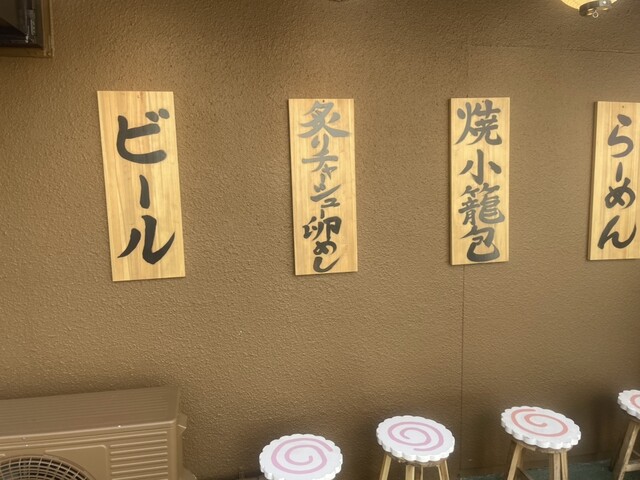 らーめん
焼小籠包
炙りチャーシュー卵めし
ビール